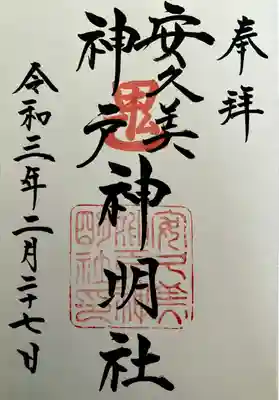 奉拝
安久美
神戸神明社
令和三年二月二十七日